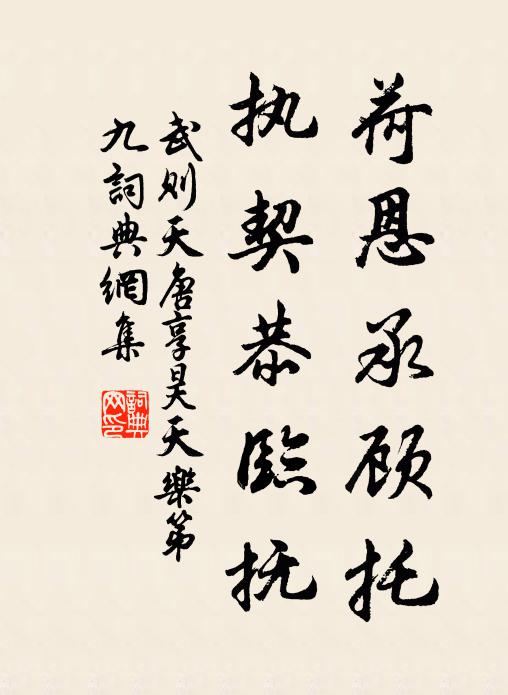 荷恩承顾托
执契恭臨抚
武则天唐享昊天樂第
九詞典網集
詞典
网印